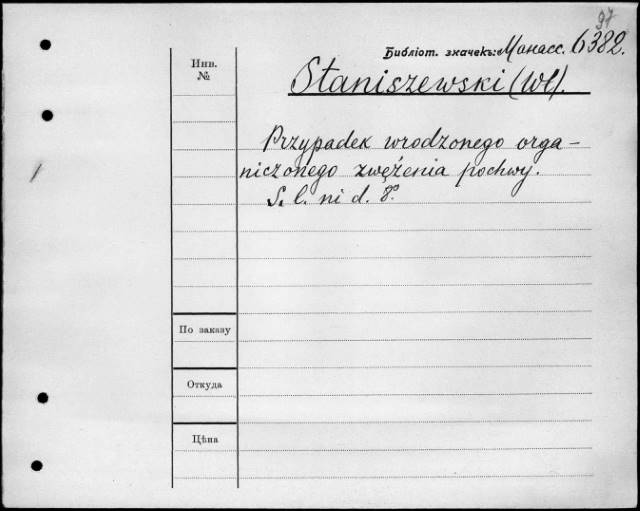 97
Библіот. значекъ: Манасс. 6382.
Инв.
№
Staniszewski (Wł).
Przypadek wrodzonego orga-
niczonego zwężenia pochwy.
S. l. ni d. 8°
По заказу
Откуда
Цѣна